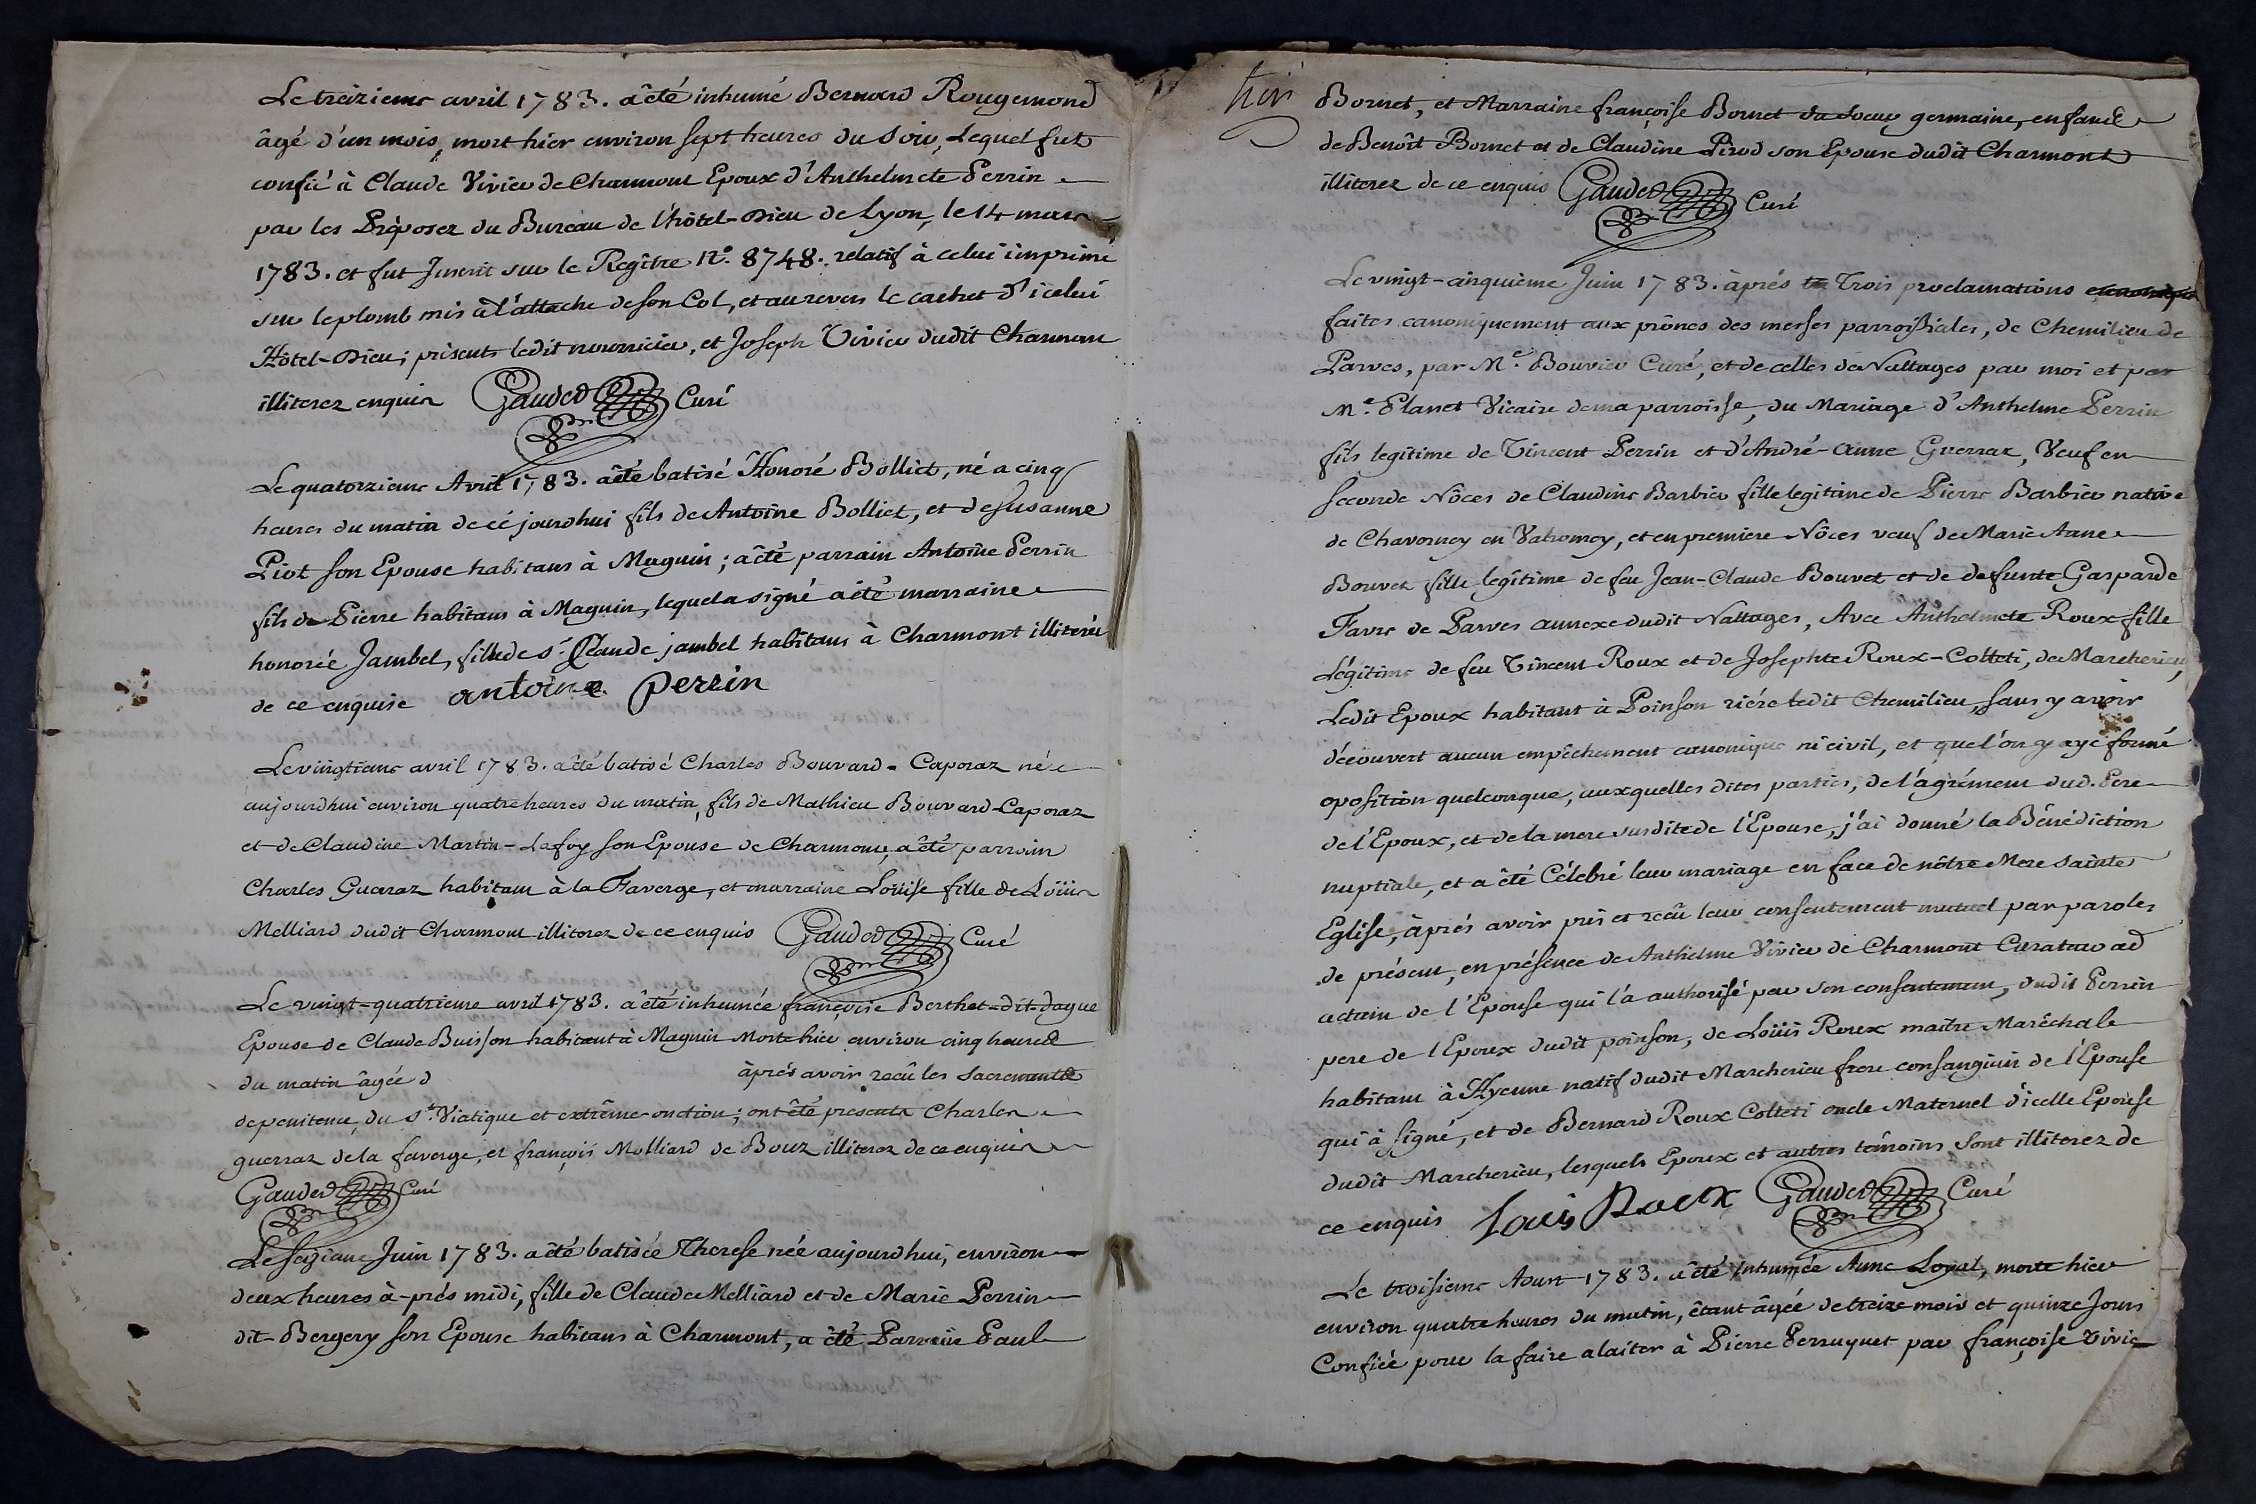 Le treizieme avril 1783. a êté inhumé Bernard Rougemond
âgé d'un mois, mort hier environ sept heures du soir, lequel fut
confié à Claude Vivier de Charmont Epoux d'Anthelmete Perrin
par les Préposez du Bureau de l'hôtel-Dieu de Lyon, le 14 mars
1783. et fut Inscrit sur le Regître N.o 8748. relatif à celui imprimé
sur le plomb mis à l'attache de son Col, et au revers le cachet d'icelui
Hôtel-Dieu; présents ledit nourricier, et Joseph Vivier dudit Charmont
illiterez enquis Gauded Curé
Le quatorzieme Avril 1783. a êté batisé Honoré Bolliet, né a cinq
heures du matin de cé jourdhui fils de Antoine Bolliet, et de Susanne
Piot son Epouse habitans à Magnin; a êté parrain Antoine Perrin
fils de Pierre habitans à Magnin, lequel a signé a été marraine
honorée Jambel, fille de Sr. Claude jambel habitans à Charmont illiterée
de ce enquise antoine perrin
Le vingtieme avril 1783. a êté batisé Charles Bouvard-Caporaz né
aujourdhui environ quatre heures du matin, fils de Mathieu Bouvard-Caporaz
et de Claudine Martin-Lafoy son Epouse de Charmont, a êté parrain
Charles Guaraz habitant à la Faverge, et marraine Loüise fille de Loüis
Melliard dudit Charmont illiterez de ce enquis Gauded Curé
Le vingt-quatrieme avril 1783. a êté inhumée françoise Berthet-dit-dague
Epouse de Claude Buisson habitant à Magnin Morte hier environ cinq heures
du matin âgée d après avoir reçû les Sacrements
de penitence, du St. Viatique et extrême-onction; ont êté presents Charles
guerraz de la faverge, et françois Molliard de Bouz illiterez de ce enquis
Gauded Curé
Le seizieme Juin 1783. a êté batisée Therese née aujourdhui, environ
deux heures à-prés midi, fille de Claude Melliard et de Marie Perrin
dit-Bergery son Epouse habitans à Charmont, a êté Parrain Paul
trois
Bornet, et Marraine françoise Bornet sa soeur germaine, enfans
de Benoît Bornet et de Claudine Pirod son Epouse dudit Charmont
illiterez de ce enquis Gauded Curé
Le vingt-cinquième Juin 1783. àprés Trois proclamations
faites canoniquement aux prônes des messes parroissiales, de Chemilieu de
Parves, par Me. Bouvier Curé, et de celles de Nattages par moi et par
Me. Planet Vicaire de ma parroisse, du Mariage d'Anthelme Perrin
fils legitime de Vincent Perrin et d'André-Anne Guerraz, Veuf en
seconde Nôces de Claudine Barbier fille legitime de Pierre Barbier native
de Chavornay en Valromey, et en premiere Nôces veuf de Marie Anne
Bouvet fille legîtime de feu Jean-Claude Bouvet et de defunte Gasparde
Favre de Parves annexe dudit Nattages, Avec Anthelmete Roux fille
Légitime de feu Vincent Roux et de Josephte Roux-Colleti, de Marcherieu,
Ledit Epoux habitant à Poinson riére ledit Chemilieu, sans y avoir
découvert aucun empêchement canonique ni civil, et que l'on y aye formé
oposition quelconque, auxquelles dites parties, de l'agrément dud. Pere
de l'Epoux, et de la mere susdite de l'Epouse, j'ai donné la Bénédiction
nuptiale, et a êté Célébré leur mariage en face de nôtre Mere sainte
Eglise, àprés avoir pris et reçû leur consentement mutuel par paroles
de présent, en présence de Anthelme Vivier de Charmont Curateur ad
actum de l'Epouse qui l'a authorisé par son consentement, dudit Perrin
pere de l'Epoux dudit poinson, de Loüis Roux maître Maréchale
habitant à Hyenne natif dudit Marcherieu frere consanguin de l'Epouse
qui à signé, et de Bernard Roux Colleti oncle Maternel d'icelle Epouse
dudit Marcherieu, lesquels Epoux et autres témoins sont illiterez de
ce enquis Louis Roux Gauded Curé
Le troisieme Aoust 1783. a êté inhumée Anne Loyal, morte hier
environ quatre heures du matin, êtant âgée de treize mois et quinze Jours
Confiée pour la faire alaiter à Pierre Perruquet par françoise Vivie